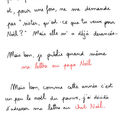 et, pour une fois, ne me demanda
pas "mister, qu'est-ce que tu veux pour
Noël ?" Mais elle m'a déjà devancée.
Mais bon je publie quand même
ma lettre au papa Noël
Mais bon comme cette année c'est
un peu le noël du pauvre, j'ai décidé
d'adresser ma lettre au chat Noël.